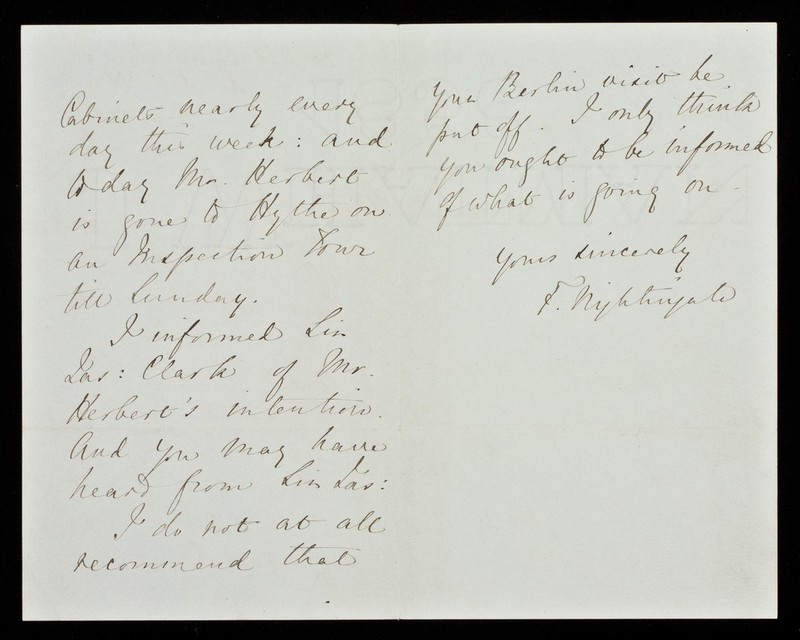 Cabinets nearly every
day this week: and
to day Mr. Herbert
is gone to Hythe on
an Inspection Tour
till Sunday.
I informed Sir
Jas: Clark of Mr.
Herbert's intention.
And you may have
heard from Sir Jas:
I do not at all
recommend that
your Berlin visit be
put off. I only think
you ought to be informed
of what is going on.
Yours sincerely
F. Nightingale